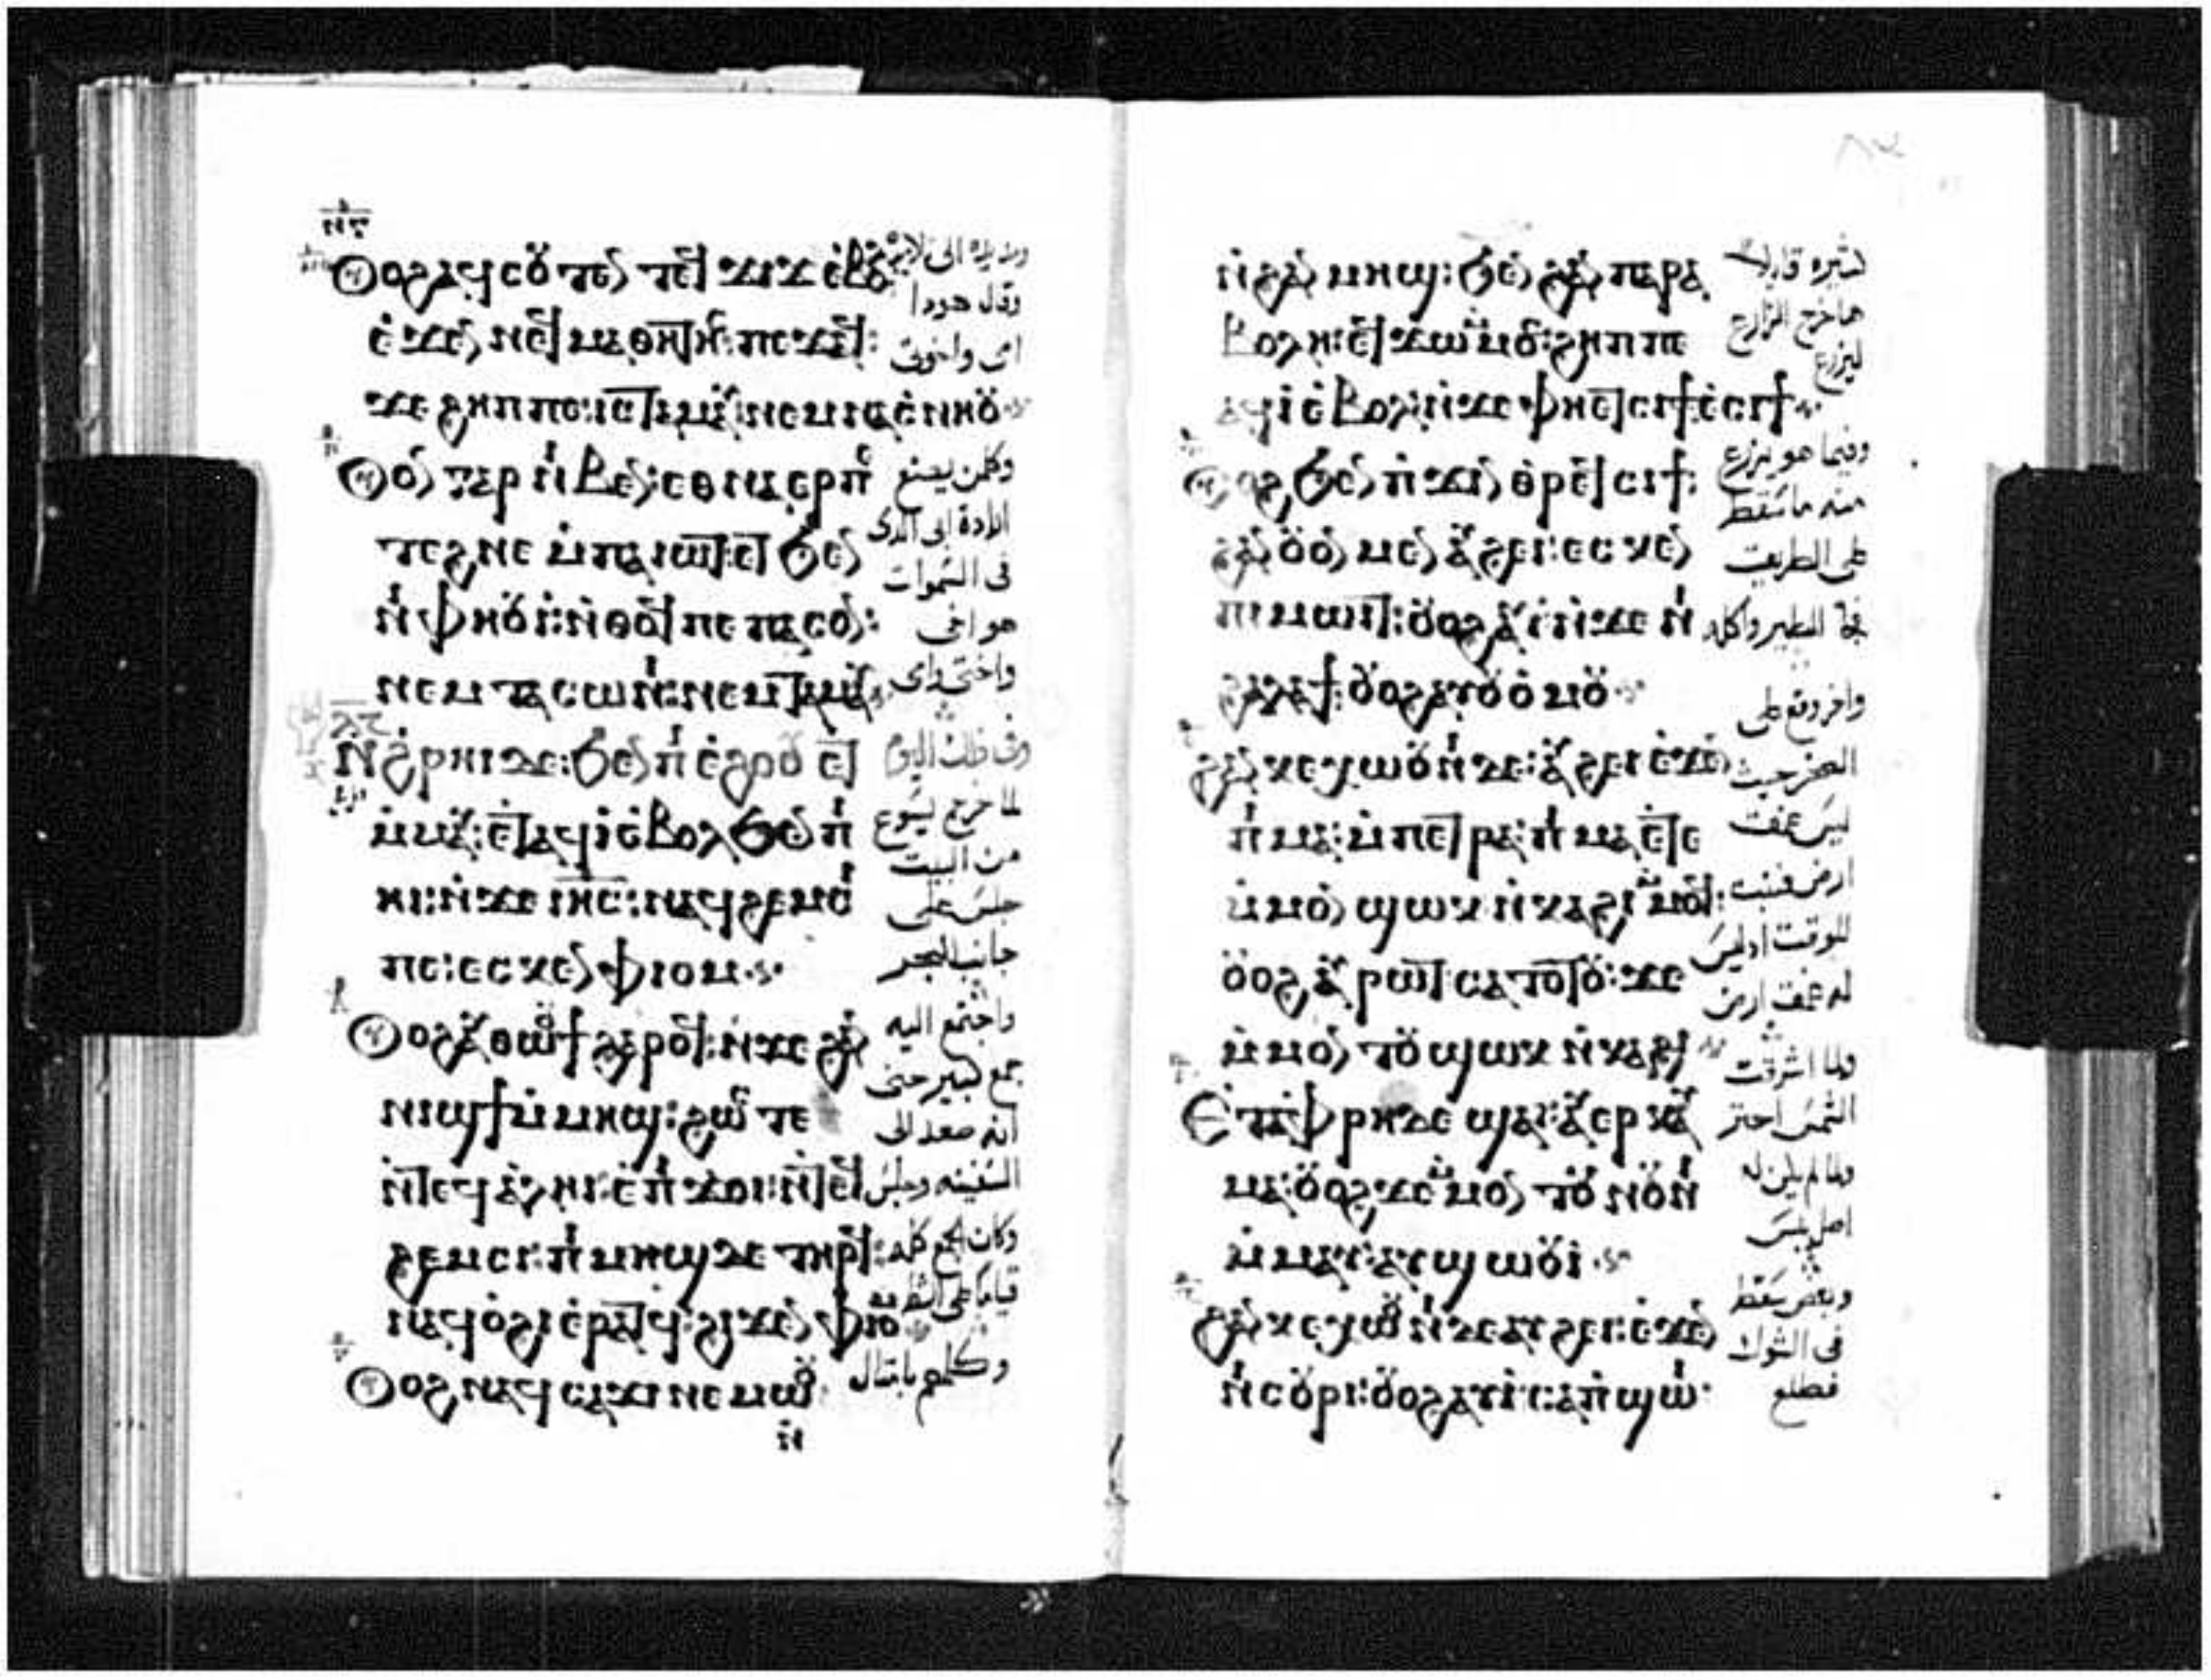 ⲛⲅ
Ⲟⲩⲟϩ ⲁϥⲥⲟⲩⲧⲉⲛ ⲧⲉϥϫⲓϫ ⲉⲃⲟⲗ
ⲉϫⲉⲛ ⲛⲉϥⲙⲁⲑⲏⲧⲏⲥ: ⲡⲉϫⲁϥ:
ϫⲉ ϩⲏⲡⲡⲉ: ⲓⲥ ⲧⲁⲙⲁⲩ: ⲛⲉⲙ ⲛⲁⲥⲛⲏⲟⲩ
Ⲟⲩⲟⲛ ⲅⲁⲣ ⲛⲓⲃⲉⲛ: ⲉⲑⲛⲁⲉⲣ ⲡⲓ
ⲧⲉϩⲛⲉ ⲙ̇ⲡⲁⲓⲱⲧ: ⲉⲧϧⲉⲛ
ⲛⲓⲫⲏⲟⲩⲓ: ⲛ̇ⲑⲟϥ ⲡⲉ ⲡⲁⲥⲟⲛ:
ⲛⲉⲙ ⲧⲁⲥⲱⲛⲓ: ⲛⲉⲙ ⲧⲁⲙⲁⲩ
Ⲛ̇ϩ̇ⲣⲏⲓ ⲇⲉ: ϧⲉⲛ ⲡⲓⲉ̇ϩⲟⲟⲩ ⲉ̇ⲧ
ⲙ̇ⲙⲁⲩ: ⲉ̇ⲧⲁϥⲓ̇ ⲉ̇ⲃⲟⲗϧⲉⲛ ⲡⲓ
ⲏⲓ: ⲛ̇ϫⲉ ⲓⲏⲥ: ⲛⲁϥϩⲉⲙⲥⲓ
ⲡⲉ: ⲉⲥⲕⲉⲛ ⲫⲓⲟⲙ
Ⲟⲩⲟϩ ⲁⲩⲑⲱⲟⲩϯ ϩⲁⲣⲟϥ: ⲛ̇ϫⲉ ϩⲁⲛ
ⲛⲓϣϯ ⲙ̇ⲙⲏϣ: ϩⲱⲥⲧⲉ
ⲛ̇ⲧⲉϥⲁ̇ⲗⲏⲓ: ⲉ̇ⲡⲓϫⲟⲓ: ⲛ̇ⲧⲉϥ
ϩⲉⲙⲥⲓ: ⲡⲓⲙⲏϣ ⲇⲉ ⲧⲏⲣϥ:
ⲛⲁϥⲟ̇ϩⲓ ⲉ̇ⲣⲁⲧϥ: ϩⲓϫⲉⲛ ⲫⲓⲟⲙ
Ⲟⲩⲟϩ ⲛⲁϥⲥⲁϫⲓ ⲛⲉⲙⲱⲟⲩ
ⲛ̇
وقال هودا
امى واخوتى
وكلمن يصنع
ارادة ابى الدى
فى السموات
هو اخى
واختى وامى
وفى ذلك اليوم
لما خرج يسوع
من البيت
جلس على
جانب البحر
واجتمع اليه
جمع كبير حتى
انه صعد الى
السفينه وجلس
وكان الجمع كله
قياما على الشط
وكلمهم بامثال
ⲛ̇ϩⲁⲛⲙⲏϣ: ϧⲉⲛ ϩⲁⲛⲡⲁⲣⲁ
ⲃⲟⲗⲏ: ⲉϥϫⲱ ⲙⲙⲟⲥ: ϩⲏⲡⲡⲉ
ⲁϥⲓ̇ ⲉ̇ⲃⲟⲗ: ⲛ̇ϫⲉ ⲫⲏⲉⲧⲥⲓϯ ⲉ̇ⲥⲓϯ
Ⲟⲩⲟϩ ϧⲉⲛ ⲡ̇ϫⲓⲛⲑⲣⲉϥⲥⲓϯ:
ϩⲁⲛⲟⲩⲟⲛ ⲙⲉⲛ ⲁⲩϩⲉⲓ: ⲉⲥⲕⲉⲛ
ⲡⲓⲙⲱⲓⲧ: ⲟⲩⲟϩ ⲁⲩⲓ̇ ⲛ̇ϫⲉ ⲛⲓ
ϩⲁⲗⲁϯ: ⲟⲩⲟϩ ⲁⲩⲟⲩⲟ̇ⲙⲟⲩ
ϩⲁⲛⲕⲉⲭⲱⲟⲩⲛⲓ ⲇⲉ: ⲁⲩϩⲉⲓ ⲉ̇ϫⲉⲛ
ⲡⲓⲙⲁ: ⲙ̇ⲡⲉⲧⲣⲁ: ⲡⲓⲙⲁ ⲉ̇ⲧⲉ
ⲙ̇ⲙⲟⲛ ϣⲱⲕ ⲛ̇ⲕⲁϩⲓ ⲙⲙⲟϥ:
ⲟⲩⲟϩ ⲁⲩⲣⲱⲧ ⲥⲁⲧⲟⲧⲟⲩ: ϫⲉ
ⲙ̇ⲙⲟⲛⲧⲟⲩ ϣⲱⲕ ⲛ̇ⲕⲁϩⲓ
Ⲉ̇ⲧⲁⲫⲣⲏ ⲇⲉ ϣⲁⲓ: ⲁⲩⲉⲣⲕⲁⲩ
ⲙⲁ: ⲟⲩⲟϩ ϫⲉ ⲙⲙⲟⲛⲧⲟⲩ ⲛⲟⲩⲛⲓ
ⲙ̇ⲙⲁⲩ: ⲁⲩϣⲱⲟⲩⲓ̇
ϩⲁⲛⲕⲉⲭⲱⲟⲩⲛⲓ ⲇⲉ ⲁⲩϩⲉⲓ: ⲉ̇ϫⲉⲛ
ⲛⲓⲥⲟⲩⲣⲓ: ⲟⲩⲟϩ ⲁⲩⲓ̇ ⲉⲡϣⲱⲓ
كثيره قايلا
ها خرج الزارع
ليزرع
وفيما هو يزرع
منه ما سقط
على الطريق
فجا الطير واكله
واخر وقع على
الصخر حيث
ليس عمق
ارض فنبت
للوقت اذ ليس
له عمق ارض
ولما اشرقت
الشمس احترق
ولما لم يكن له
اصل يبس
وبعض سقط
فى الشوك
فطلع